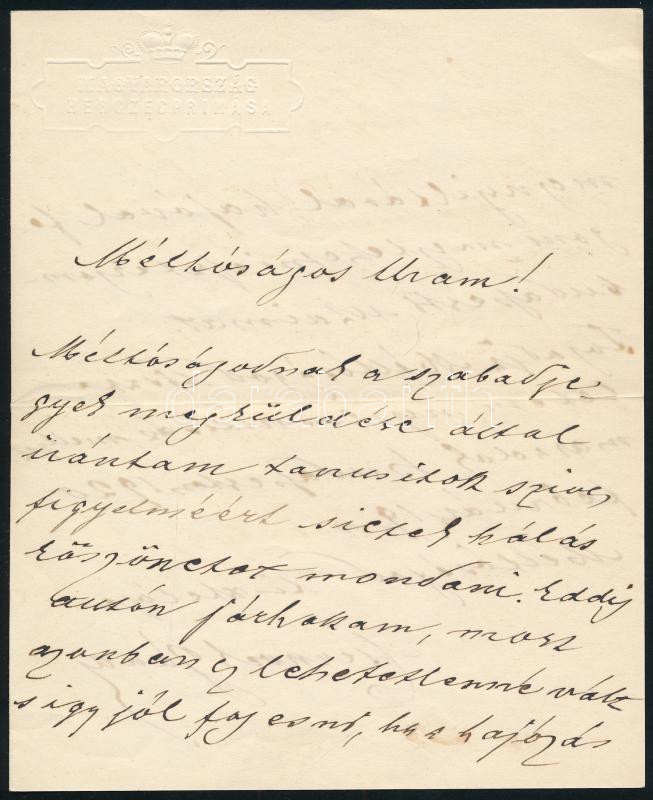 MAGYARORSZÁG
HERCZEGPRIMÁSA
Méltóságos Uram!
Méltóságodnak a szabadje-
gyek megküldése által
irántam tanusitott szives
figyelméért sietek hálás
köszönetet mondani. Eddig
autón járhattam, most
azonban ez lehetetlenné vált
s igy jól fog esni, ha a hajózás
darabanth